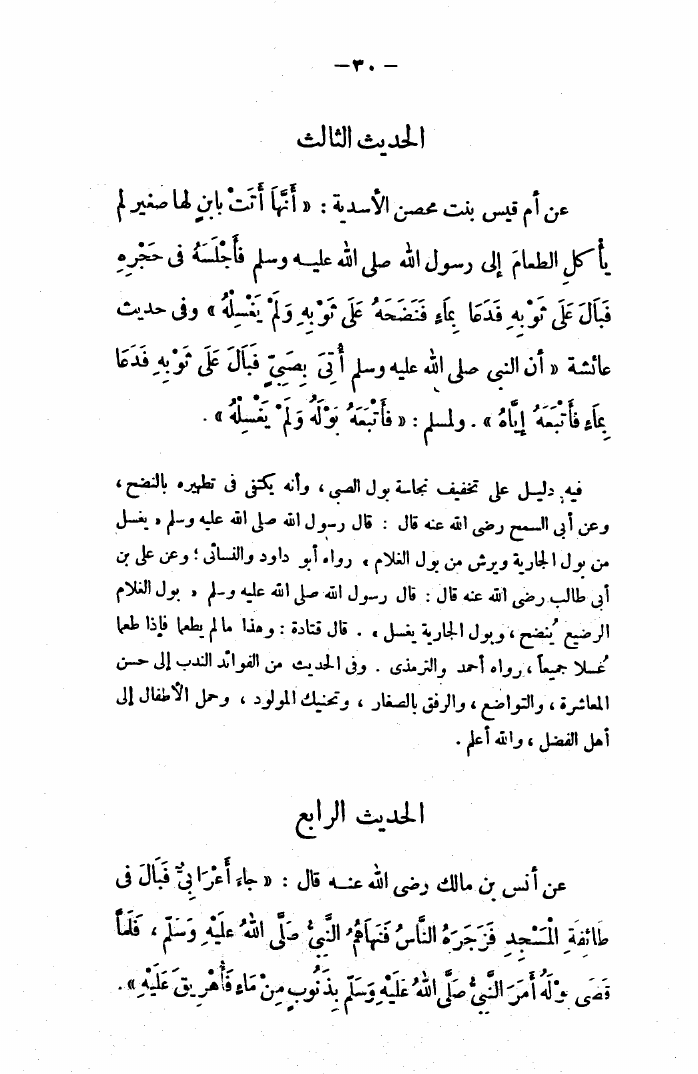 — ٣٠ —
الحديث الثالث
عن أم قيس بنت محصن الأسدية : « أَنَّهَا أَتَتْ بِابنٍ لها صغير لم
يأْكلِ الطعامَ إلى رسول الله صلى الله عليه وسلم فَأَجْلَسَهُ فى حَجْرِهِ
فَبَالَ عَلَى ثَوْبِهِ فَدَعَا بِمَاءٍ فَنَضَحَهُ عَلَى ثَوْبِهِ وَلَمْ يَغْسِلْهُ » وفى حديث
عائشة « أن النبى صلى الله عليه وسلم أُتِىَ بِصَبِىٍّ فَبَالَ عَلَى ثَوْبِهِ فَدَعَا
بِمَاءٍ فَأَتْبَعَهُ إِيَّاهُ » . ولمسلم : « فَأَتْبَعَهُ بَوْلَهُ وَلَمْ يَغْسِلْهُ » .
فيه دليل على تخفيف نجاسة بول الصبى ، وأنه يكتفى فى تطهيره بالنضح ،
وعن أبى السمح رضى الله عنه قال : قال رسول الله صلى الله عليه وسلم « يغسل
من بول الجارية ويرش من بول الغلام » رواه أبو داود والنسائى ؛ وعن على بن
أبى طالب رضى الله عنه قال : قال رسول الله صلى الله عليه وسلم « بول الغلام
الرضيع يُنضح ، وبول الجارية يغسل » . قال قتادة : وهذا ما لم يطعما فإذا طعما
غُسلا جميعاً ، رواه أحمد والترمذى . وفى الحديث من الفوائد الندب إلى حسن
المعاشرة ، والتواضع ، والرفق بالصغار ، وتحنيك المولود ، وحمل الأطفال إلى
أهل الفضل ، والله أعلم .
الحديث الرابع
عن أنس بن مالك رضى الله عنه قال : « جاءَ أَعْرَابِىٌّ فَبَالَ فى
طَائِفَةِ الْمَسْجِدِ فَزَجَرَهُ النَّاسُ فَنَهَاهُمُ النَّبِىُّ صَلَّى اللهُ عَلَيْهِ وَسَلَّمَ ، فَلَمَّا
قَضَى بَوْلَهُ أَمَرَ النَّبِىُّ صَلَّى اللهُ عَلَيْهِ وَسَلَّمَ بِذَنُوبٍ مِنْ مَاءٍ فَأُهْرِيقَ عَلَيْهِ » .